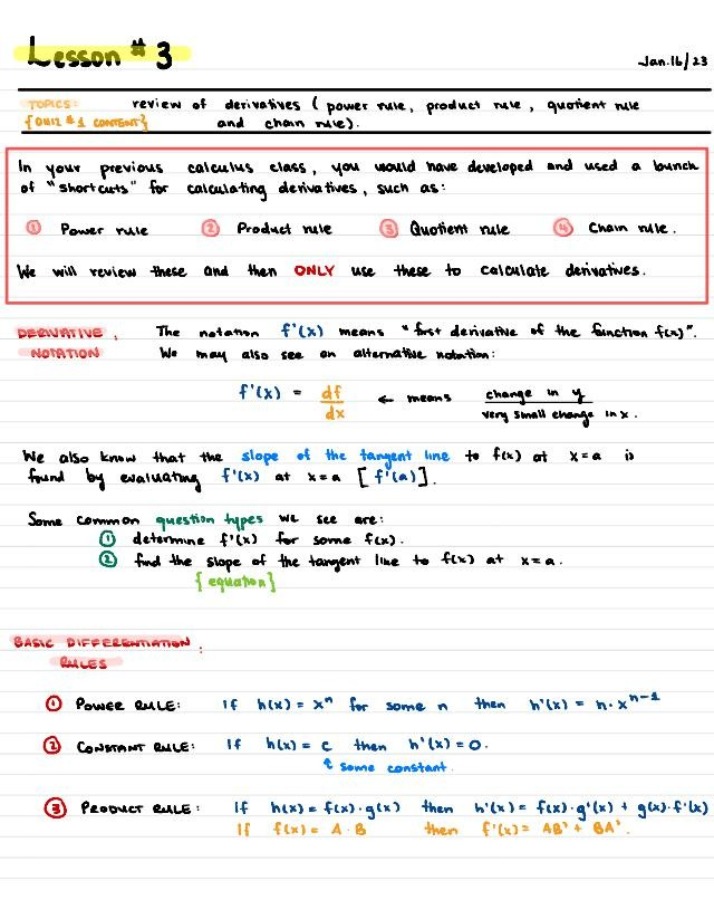 Lesson # 3
Jan.16/23
TOPICS: review of derivatives ( power rule, product rule, quotient rule
{QUIZ #1 CONTENT} and chain rule).
In your previous calculus class, you would have developed and used a bunch
of "shortcuts" for calculating derivatives, such as:
① Power rule ② Product rule ③ Quotient rule ④ Chain rule.
We will review these and then ONLY use these to calculate derivatives.
DERIVATIVE : The notation f'(x) means "first derivative of the function f(x)".
NOTATION We may also see an alternative notation:
f'(x) = df/dx ← means change in y / very small change in x.
We also know that the slope of the tangent line to f(x) at x=a is
found by evaluating f'(x) at x=a [f'(a)].
Some common question types we see are:
① determine f'(x) for some f(x).
② find the slope of the tangent line to f(x) at x=a.
{equation}
BASIC DIFFERENTIATION :
RULES
① POWER RULE: If h(x) = xⁿ for some n then h'(x) = n·xⁿ⁻¹
② CONSTANT RULE: If h(x) = c then h'(x) = 0.
↑ some constant.
③ PRODUCT RULE: If h(x) = f(x)·g(x) then h'(x) = f(x)·g'(x) + g(x)·f'(x)
If f(x) = A·B then f'(x) = AB' + BA'.